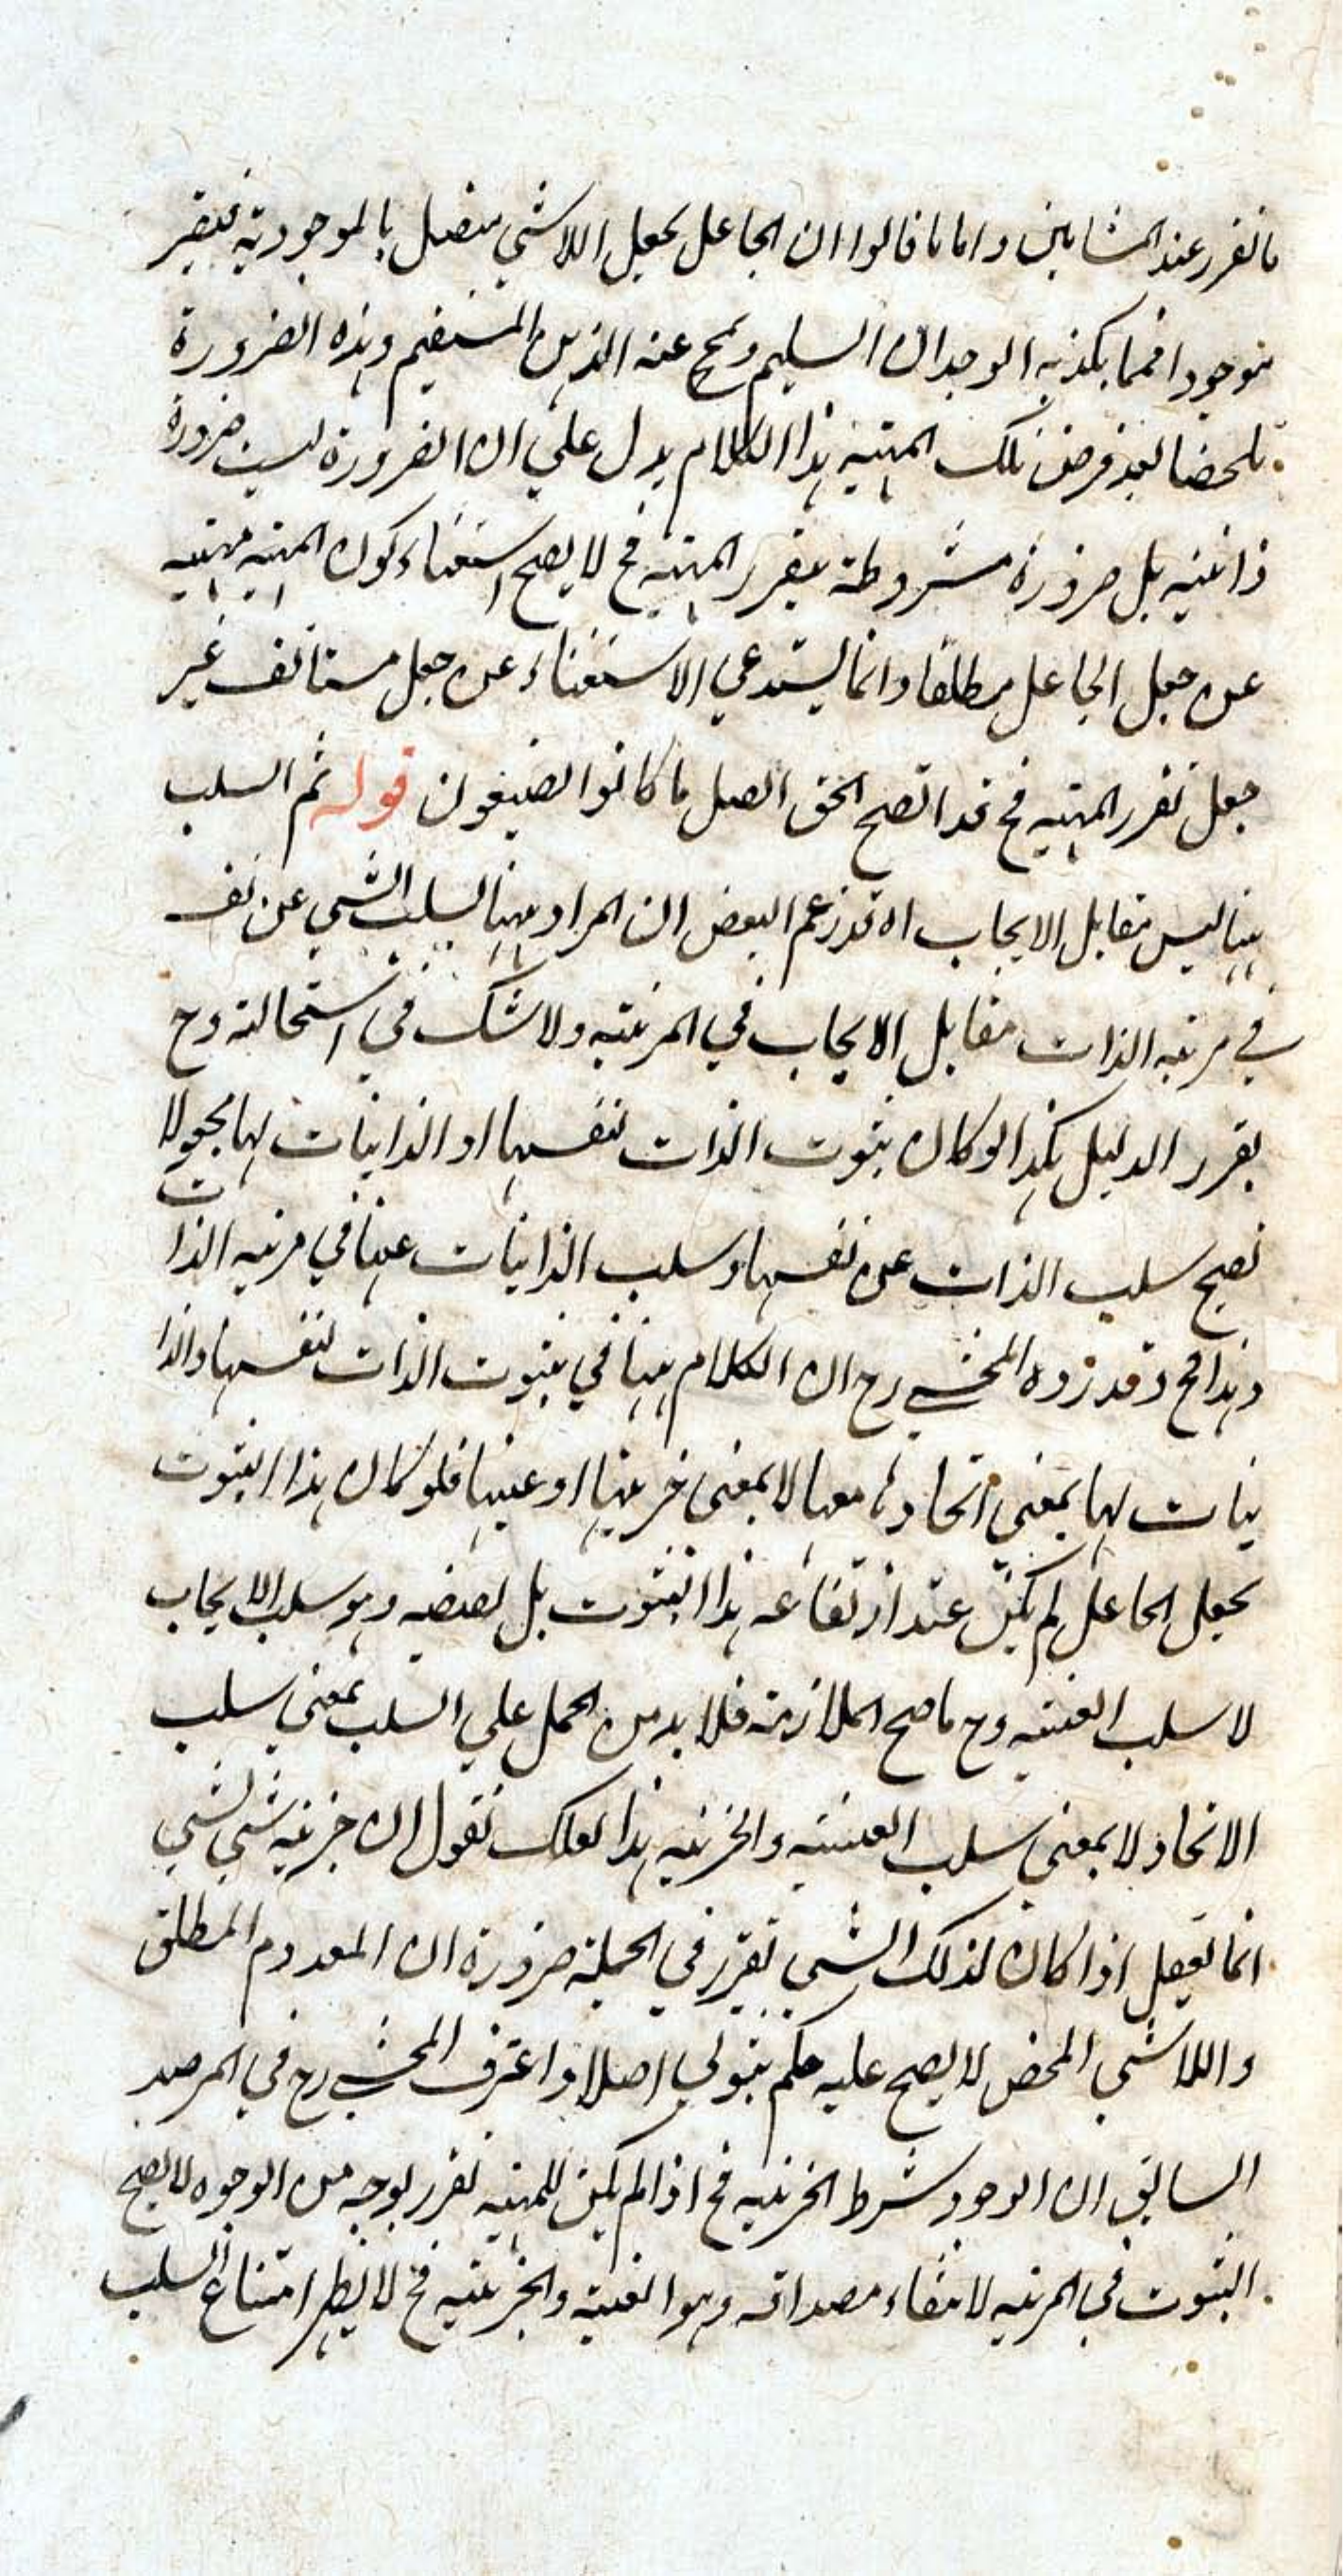 ما تقرر عند المشائين واما ما قالوا ان الجاعل يجعل اللاشي متصل بالموجودية فيصير
موجودا فمما يكذبه الوجدان السليم ويمج عنه الذهن المستقيم وهذه الضرورة
تلحضا بعد فرض تلك المهية هذا الكلام يدل علي ان الضرورة ليست ضرورة
ذاتية بل ضرورة مشروطة بتقرر المهية فح لا يصح استغناء كون المهية مهية
عن جعل الجاعل مطلقا وانما يستدعي الاستغناء عن جعل مستانف غير
جعل تقرر المهية فح قد اتضح الحق وبطل ما كانوا يصنعون قوله ثم السلب
ههنا ليس مقابل الايجاب اه قد زعم البعض ان المراد ههنا سلب الشي عن نفسه
في مرتبة الذات مقابل الايجاب في المرتبة ولا شك في استحالته وح
يقرر الدليل هكذا لو كان ثبوت الذات لنفسها او الذاتيات لها مجعولا
لصح سلب الذات عن نفسها وسلب الذاتيات عنها في مرتبة الذات
وهذا مح وقد رده المحشي رح ان الكلام ههنا في ثبوت الذات لنفسها والذا
تيات لها بمعني اتحادها معها لا بمعني جزئيتها او عينيتها فلو كان هذا الثبوت
بجعل الجاعل لم يكن عند ارتفاعه هذا الثبوت بل نقيضه وهو سلب الايجاب
لا سلب العينية وح ما صح الملازمة فلا بد من الحمل علي السلب بمعني سلب
الاتحاد لا بمعني سلب العينية والجزئية هذا لعلك تقول ان جزئية شي لشي
انما تعقل اذا كان لذلك الشي تقرر في الجملة ضرورة ان المعدوم المطلق
واللاشي المحض لا يصح عليه حكم ثبوتي اصلا واعترف المحشي رح في المرصد
السابق ان الوجود شرط الجزئية فح اذا لم يكن للمهية تقرر بوجه من الوجوه لا يصح
الثبوت في المرتبة لانتفاء مصداقه وهو العينية والجزئية فح لا يظهر امتناع السلب